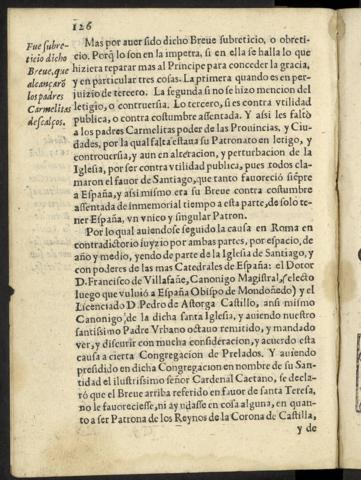 126
Fue subre-
ticio dicho
Breue, que
alcançarõ
los padres
Carmelitas
descalços.
Mas por auer sido dicho Breue subreticio, o obreti-
cio. Porq̃ lo son en la impetra, si en ella se halla lo que
hiziera reparar mas al Principe para conceder la gracia,
y en particular tres cosas. La primera quando es en per-
juizio de tercero. La segunda si no se hizo mencion del
letigio, o controuersia. Lo tercero, si es contra vtilidad
publica, o contra costumbre assentada. Y assi les faltò
a los padres Carmelitas poder de las Prouincias, y Ciu-
dades, por la qual falta estaua su Patronato en letigo, y
controuersia, y aun en alteracion, y perturbacion de la
Iglesia, por ser contra vtilidad publica, pues todos cla-
maron el fauor de Santiago, que tanto fauoreciò siẽpre
a España, y assi mismo era su Breue contra costumbre
assentada de inmemorial tiempo a esta parte, de solo te-
ner España, vn vnico y singular Patron.
Por lo qual auiendose seguido la causa en Roma en
contradictorio iuyzio por ambas partes, por espacio, de
año y medio, yendo de parte de la Iglesia de Santiago, y
con poderes de las mas Catedrales de España: el Dotor
D. Francisco de Villafañe, Canonigo Magistral, (electo
luego que vuluiò a España Obispo de Mondoñedo) y el
Licenciado D. Pedro de Astorga Castillo, ansi mismo
Canonigo, de la dicha santa Iglesia, y auiendo nuestro
santissimo Padre Vrbano octauo remitido, y mandado
ver, y discutir con mucha consideracion, y acuerdo esta
causa a cierta Congregacion de Prelados. Y auiendo
presidido en dicha Congregacion en nombre de su San-
tidad el ilustrissimo señor Cardenal Caetano, se decla-
rò que el Breue arriba referido en fauor de santa Teresa,
no le fauoreciesse, ni ayudasse en cosa alguna, en quan-
to a ser Patrona de los Reynos de la Corona de Castilla,
y de